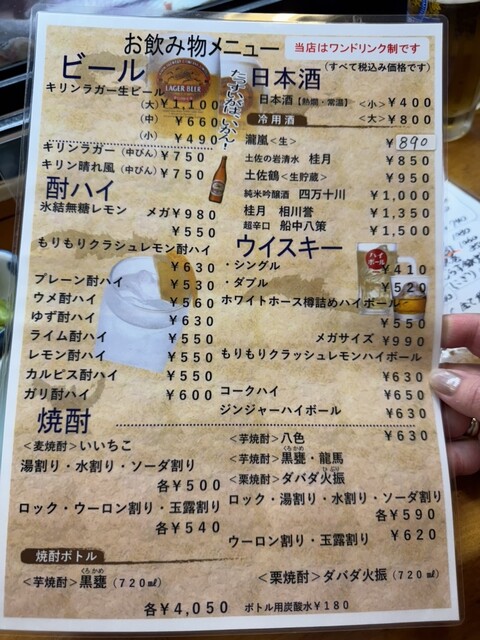 お飲み物メニュー
当店はワンドリンク制です
(すべて税込み価格です)
ビール
キリンラガー生ビール
(大)¥1,100
(中) ¥660
(小) ¥490
キリンラガー(中びん)¥750
キリン晴れ風(中びん)¥750
LAGER BEER
たっすいがは、いかん!
酎ハイ
氷結無糖レモン メガ¥980
¥550
もりもりクラシュレモン酎ハイ
¥630
プレーン酎ハイ ¥530
ウメ酎ハイ ¥560
ゆず酎ハイ ¥630
ライム酎ハイ ¥550
レモン酎ハイ ¥550
カルピス酎ハイ ¥550
ガリ酎ハイ ¥600
日本酒
日本酒【熱燗・常温】 <小>¥400
<大>¥800
冷用酒
瀧嵐<生> ¥890
土佐の岩清水 桂月 ¥850
土佐鶴<生貯蔵> ¥950
純米吟醸酒 四万十川 ¥1,000
桂月 相川誉 ¥1,350
超辛口 船中八策 ¥1,500
ウイスキー
・シングル ¥410
・ダブル ¥520
ホワイトホース樽詰めハイボール
¥550
メガサイズ ¥990
もりもりクラッシュレモンハイボール
¥630
コークハイ ¥650
ジンジャーハイボール ¥630
ハイボール
焼酎
<麦焼酎>いいちこ
湯割り・水割り・ソーダ割り
各¥500
ロック・ウーロン割り・玉露割り
各¥540
<芋焼酎>八色 ¥630
くろかめ
<芋焼酎>黒甕・龍馬
ひぶり
<栗焼酎>ダバダ火振
ロック・湯割り・水割り・ソーダ割り
各¥590
ウーロン割り・玉露割り ¥620
焼酎ボトル
くろかめ
<芋焼酎>黒甕(720㎖)
<栗焼酎>ダバダ火振(720㎖)
各¥4,050 ボトル用炭酸水¥180